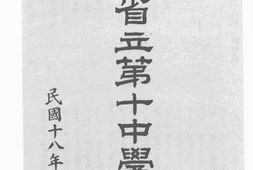 省立第十中學
民國十八年